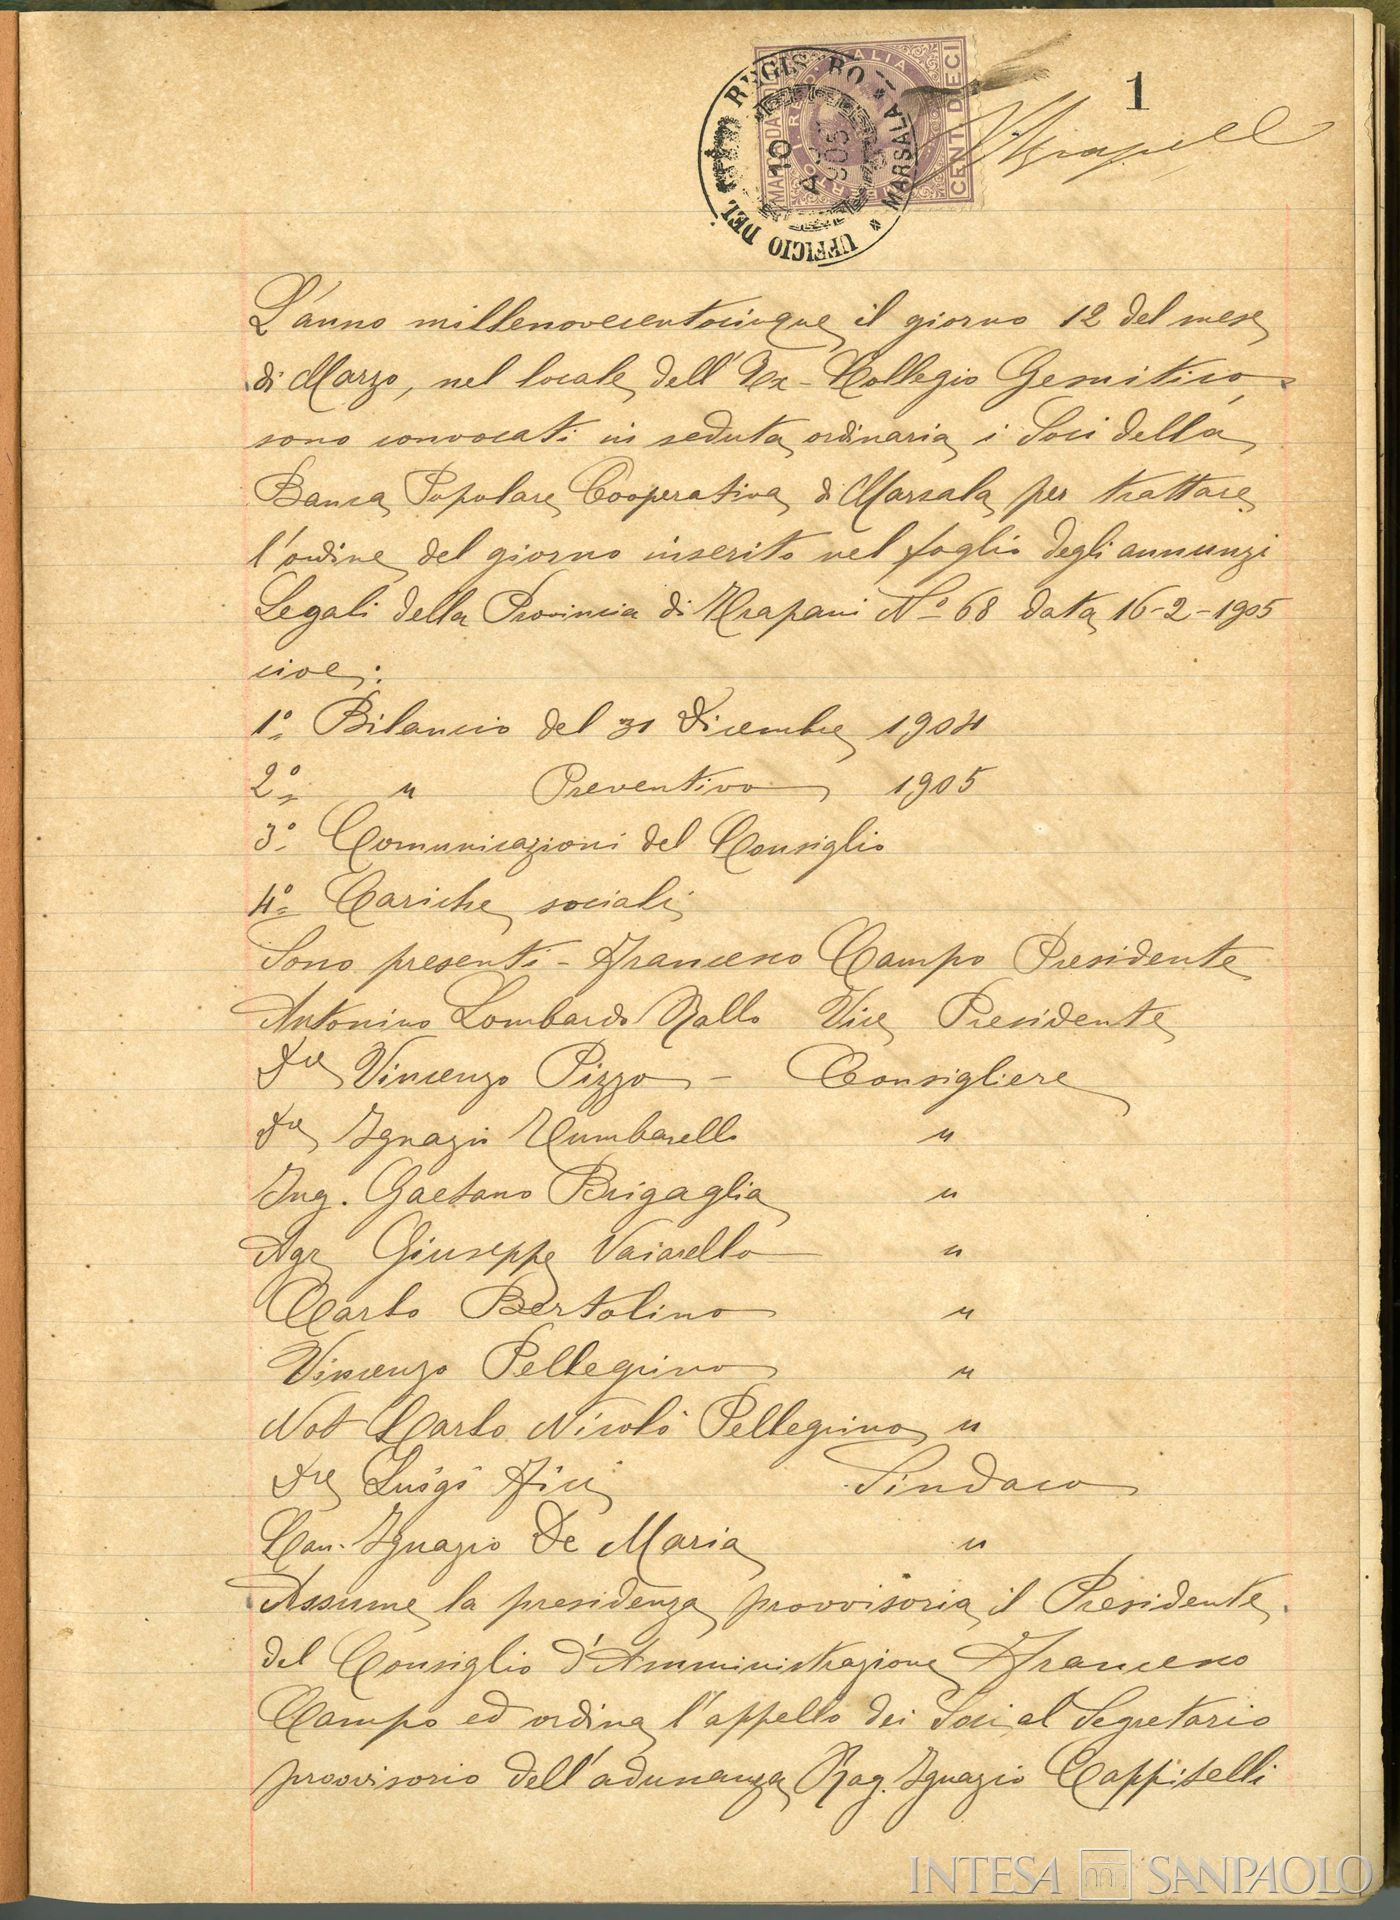 1
MARCA DA BOLLO
REGNO D'ITALIA
CENT. DIECI
UFFICIO DEL REGISTRO * MARSALA *
10
L'anno millenovecentocinque il giorno 12 del mese
di Marzo, nel locale dell'Ex-Collegio Gesuitico,
sono convocati in seduta ordinaria i Soci della
Banca Popolare Cooperativa di Marsala per trattare
l'ordine del giorno inserito nel foglio degli annunzi
Legali della Provincia di Trapani No 68 data 16-2-1905
cioe:
1o Bilancio del 31 Dicembre 1904
2o " Preventivo 1905
3o Comunicazioni del Consiglio
4o Cariche sociali
Sono presenti - Francesco Campo Presidente
Antonino Lombardo Rallo Vice Presidente
Dre Vincenzo Pizzo - Consigliere
Dre Ignazio Tumbarello "
Ing. Gaetano Brigaglia "
Agr Giuseppe Vaiarello "
Carlo Bertolino "
Vincenzo Pellegrino "
Not Carlo Nicolò Pellegrino "
Dre Luigi Fici Sindaco
Can. Ignazio De Maria "
Assume la presidenza provvisoria il Presidente
del Consiglio d'Amministrazione Francesco
Campo ed ordina l'appello dei Soci al Segretario
provvisorio dell'adunanza Rag. Ignazio Cappitelli
INTESA SANPAOLO